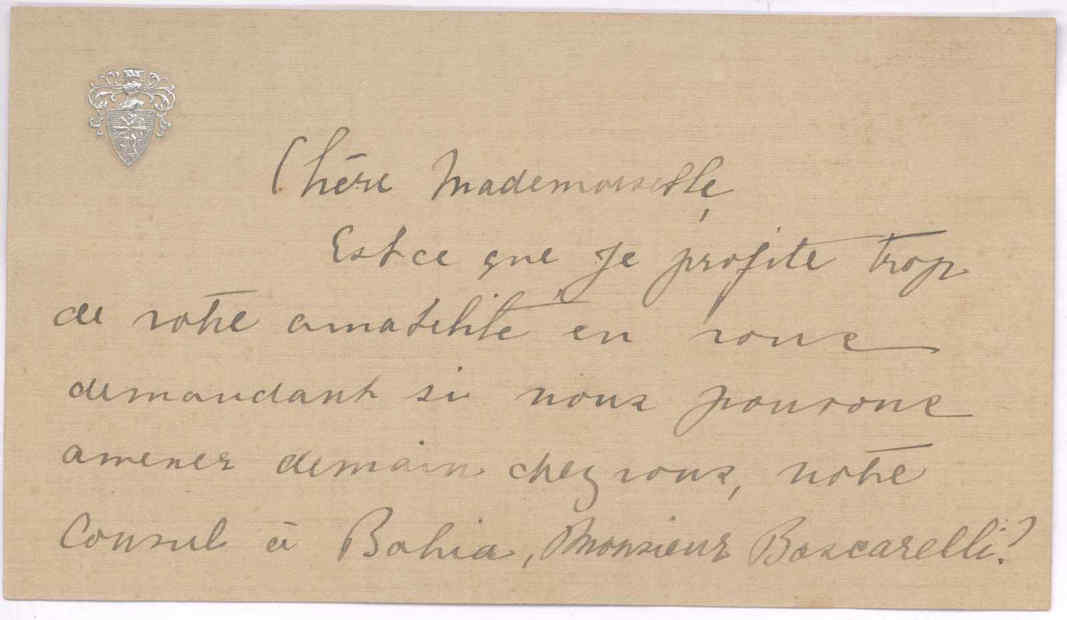 Chère Mademoiselle,
Est ce que je profite trop
de votre amabilité en vous
demandant si nous pouvons
amener demain chez vous, notre
Consul à Bahia, Monsieur Boscarelli?